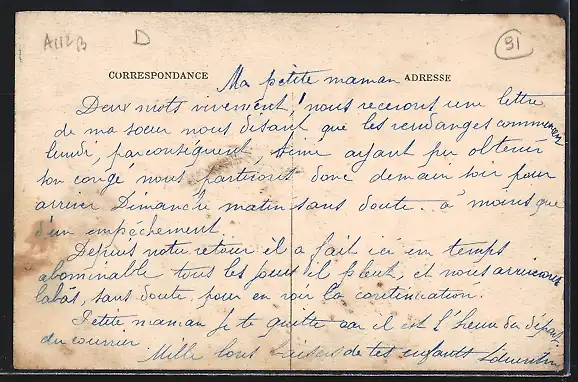 A112B D 91
CORRESPONDANCE Ma petite maman ADRESSE
Deux mots vivement, nous recevons une lettre
de ma soeur nous disant que les vendanges commencent
lundi, par conséquent, ayant pu obtenir
son congé nous partirons donc demain soir pour
arriver Dimanche matin sans doute à moins que
d'un empêchement.
Depuis notre retour il a fait ici un temps
abominable tous les jours il pleut, et nous arriverons
labàs, sans doute pour en voir la continuation.
Petite maman je te quitte car il est l'heure du départ
du courrier
Mille bons baisers de tes enfants